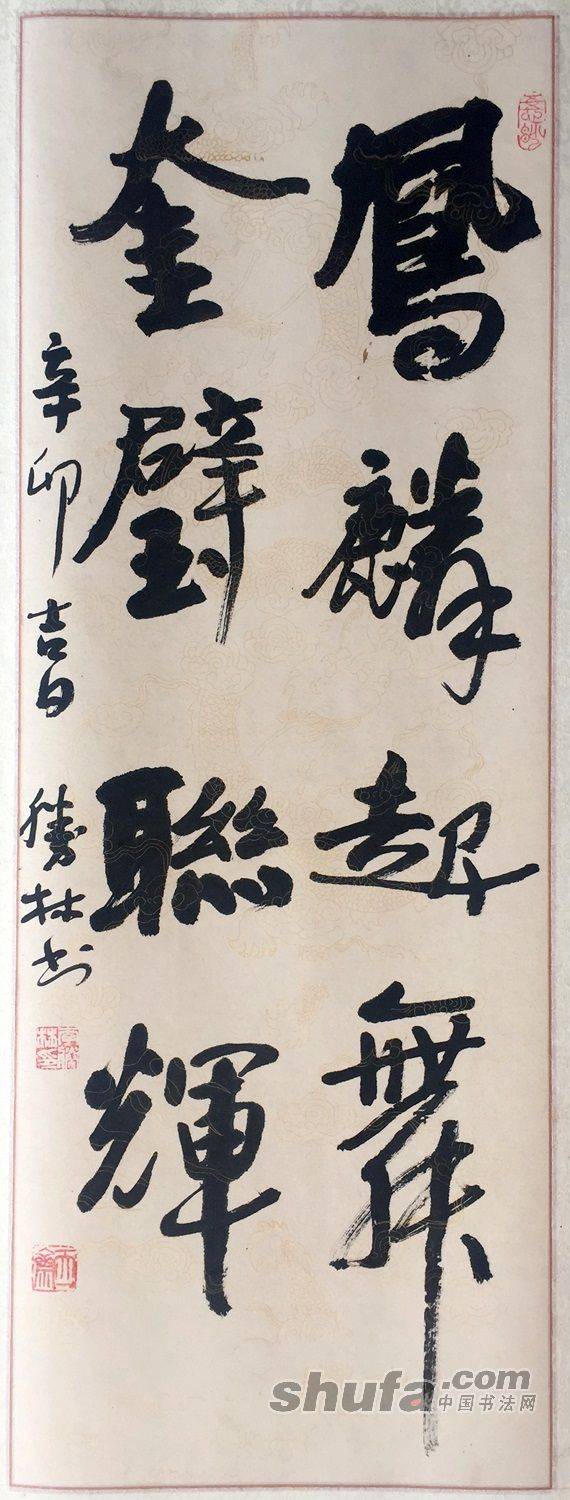 鳳麟起舞
奎璧聯輝
辛卯吉日 勝林书
shufa.com
中国书法网